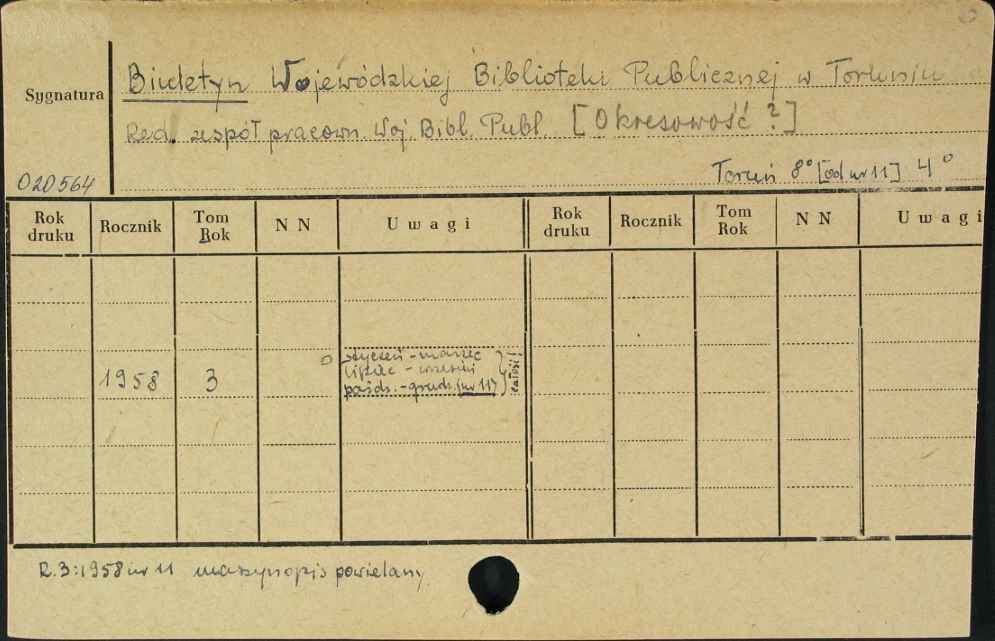 Biuletyn Wojewódzkiej Biblioteki Publicznej w Toruniu
Sygnatura
Red. zespół pracown. Woj. Bibl. Publ. [Okresowość ?]
020564
Toruń 8° [od nr 11] 4°
Rok druku Rocznik Tom Rok NN Uwagi Rok druku Rocznik Tom Rok NN Uwagi
styczeń - marzec
lipiec - wrzesień
1958 3 paźdz. - grudz. (nr 11) } całość!
R.3:1958 nr 11 maszynopis powielany